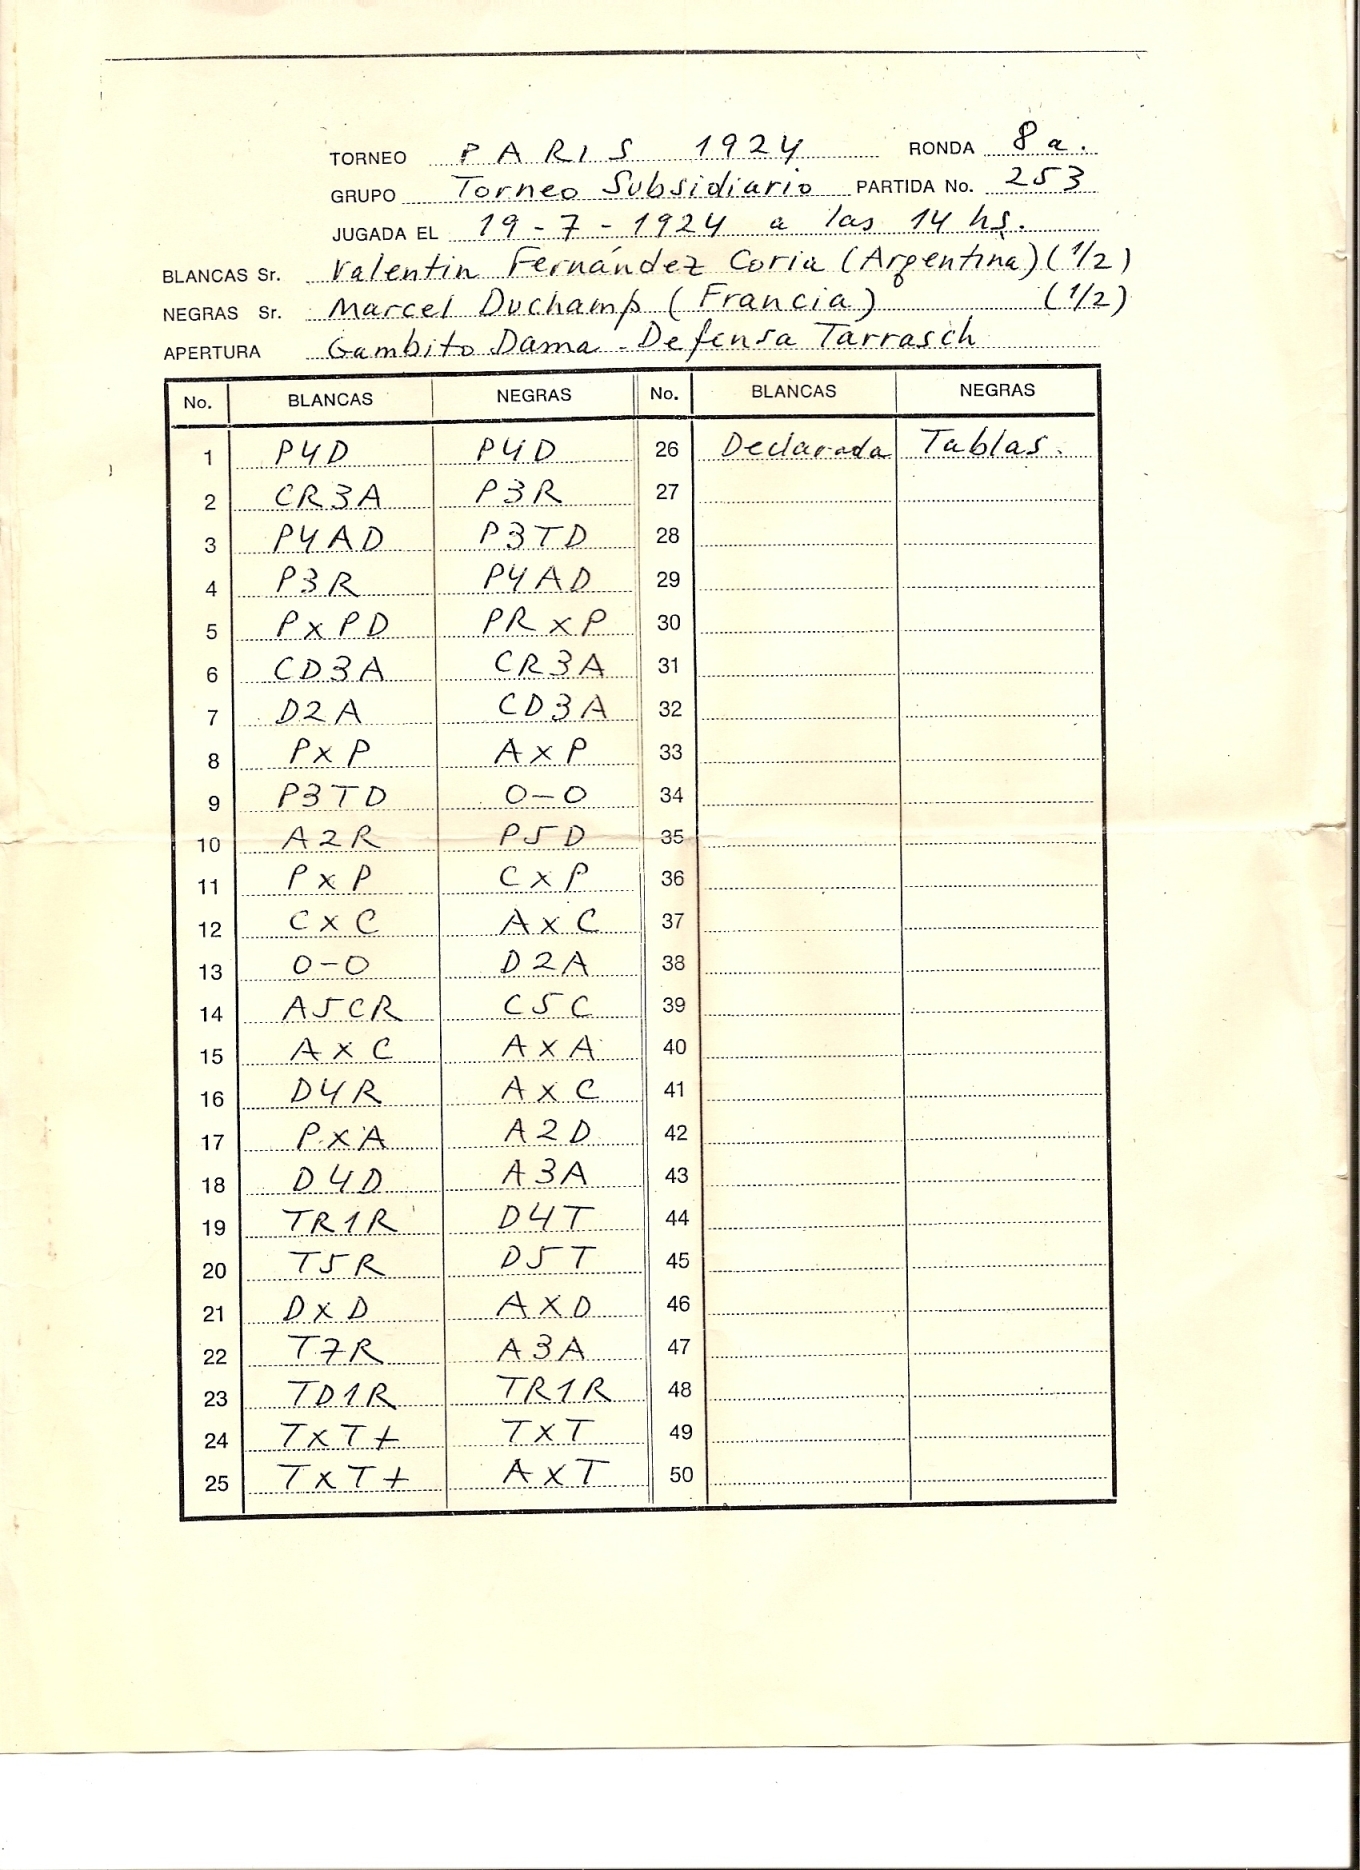 TORNEO PARIS 1924 RONDA 8a.
GRUPO Torneo Subsidiario PARTIDA No. 253
JUGADA EL 19-7-1924 a las 14 hs.
BLANCAS Sr. Valentin Fernández Coria (Argentina) (1/2)
NEGRAS Sr. Marcel Duchamp (Francia) (1/2)
APERTURA Gambito Dama - Defensa Tarrasch
No. BLANCAS NEGRAS No. BLANCAS NEGRAS
1 P4D P4D 26 Declarada Tablas.
2 CR3A P3R 27
3 P4AD P3TD 28
4 P3R P4AD 29
5 PxPD PRxP 30
6 CD3A CR3A 31
7 D2A CD3A 32
8 PxP AxP 33
9 P3TD O-O 34
10 A2R P5D 35
11 PxP CxP 36
12 CxC AxC 37
13 O-O D2A 38
14 A5CR C5C 39
15 AxC AxA 40
16 D4R AxC 41
17 PxA A2D 42
18 D4D A3A 43
19 TR1R D4T 44
20 T5R D5T 45
21 DxD AXD 46
22 T7R A3A 47
23 TD1R TR1R 48
24 TxT+ TXT 49
25 TxT+ AXT 50